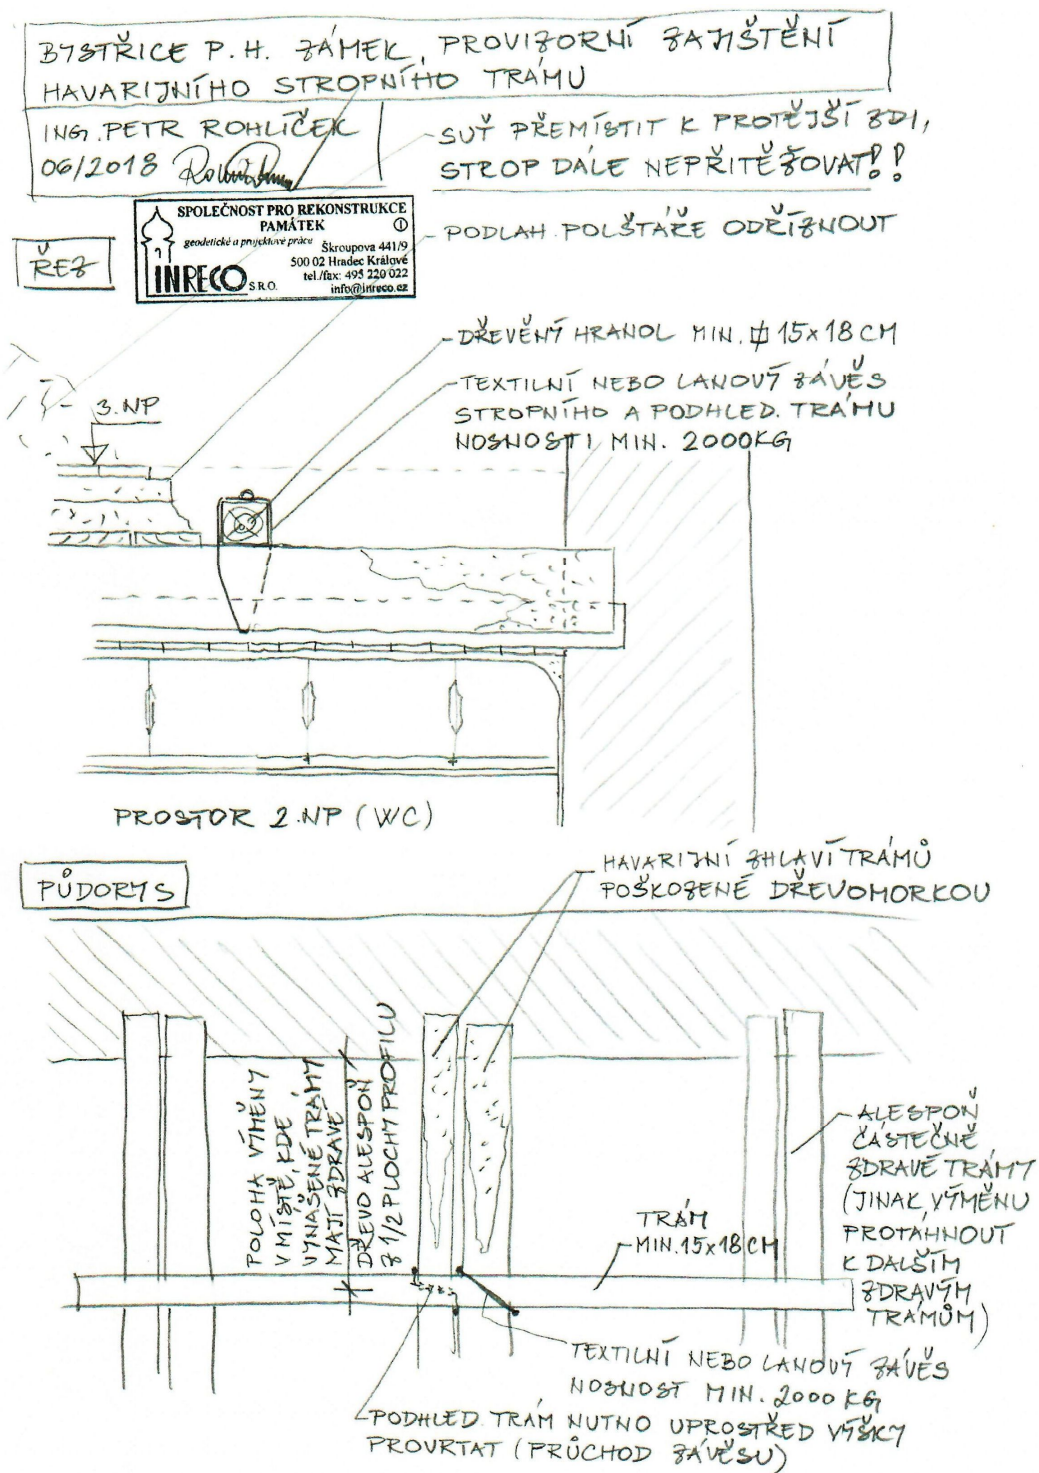 BYSTŘICE P. H. ZÁMEK, PROVIZORNÍ ZAJIŠTĚNÍ
HAVARIJNÍHO STROPNÍHO TRÁMU
ING. PETR ROHLÍČEK
06/2018
SUŤ PŘEMÍSTIT K PROTĚJŠÍ ZDI,
STROP DÁLE NEPŘITĚŽOVAT!!
SPOLEČNOST PRO REKONSTRUKCE
PAMÁTEK
geodetické a projektové práce
Škroupova 441/9
500 02 Hradec Králové
tel./fax: 495 220 022
info@inreco.cz
INRECO S.R.O.
ŘEZ
PODLAH. POLŠTÁŘE ODŘÍZNOUT
DŘEVĚNÝ HRANOL MIN. 15x18 CM
TEXTILNÍ NEBO LANOVÝ ZÁVĚS
STROPNÍHO A PODHLED. TRÁMU
NOSNOSTI MIN. 2000KG
3.NP
PROSTOR 2.NP (WC)
PŮDORYS
HAVARIJNÍ ZHLAVÍ TRÁMŮ
POŠKOZENÉ DŘEVOMORKOU
POLOHA VÝMĚNY
V MÍSTĚ, KDE
VYNÁŠENÉ TRÁMY
MAJÍ ZDRAVÉ
DŘEVO ALESPOŇ
Z 1/2 PLOCHY PROFILU
TRÁM
MIN. 15x18 CM
ALESPOŇ
ČÁSTEČNĚ
ZDRAVÉ TRÁMY
(JINAK VÝMĚNU
PROTÁHNOUT
K DALŠÍM
ZDRAVÝM
TRÁMŮM)
TEXTILNÍ NEBO LANOVÝ ZÁVĚS
NOSNOST MIN. 2000 KG
PODHLED. TRÁM NUTNO UPROSTŘED VÝŠKY
PROVRTAT (PRŮCHOD ZÁVĚSU)